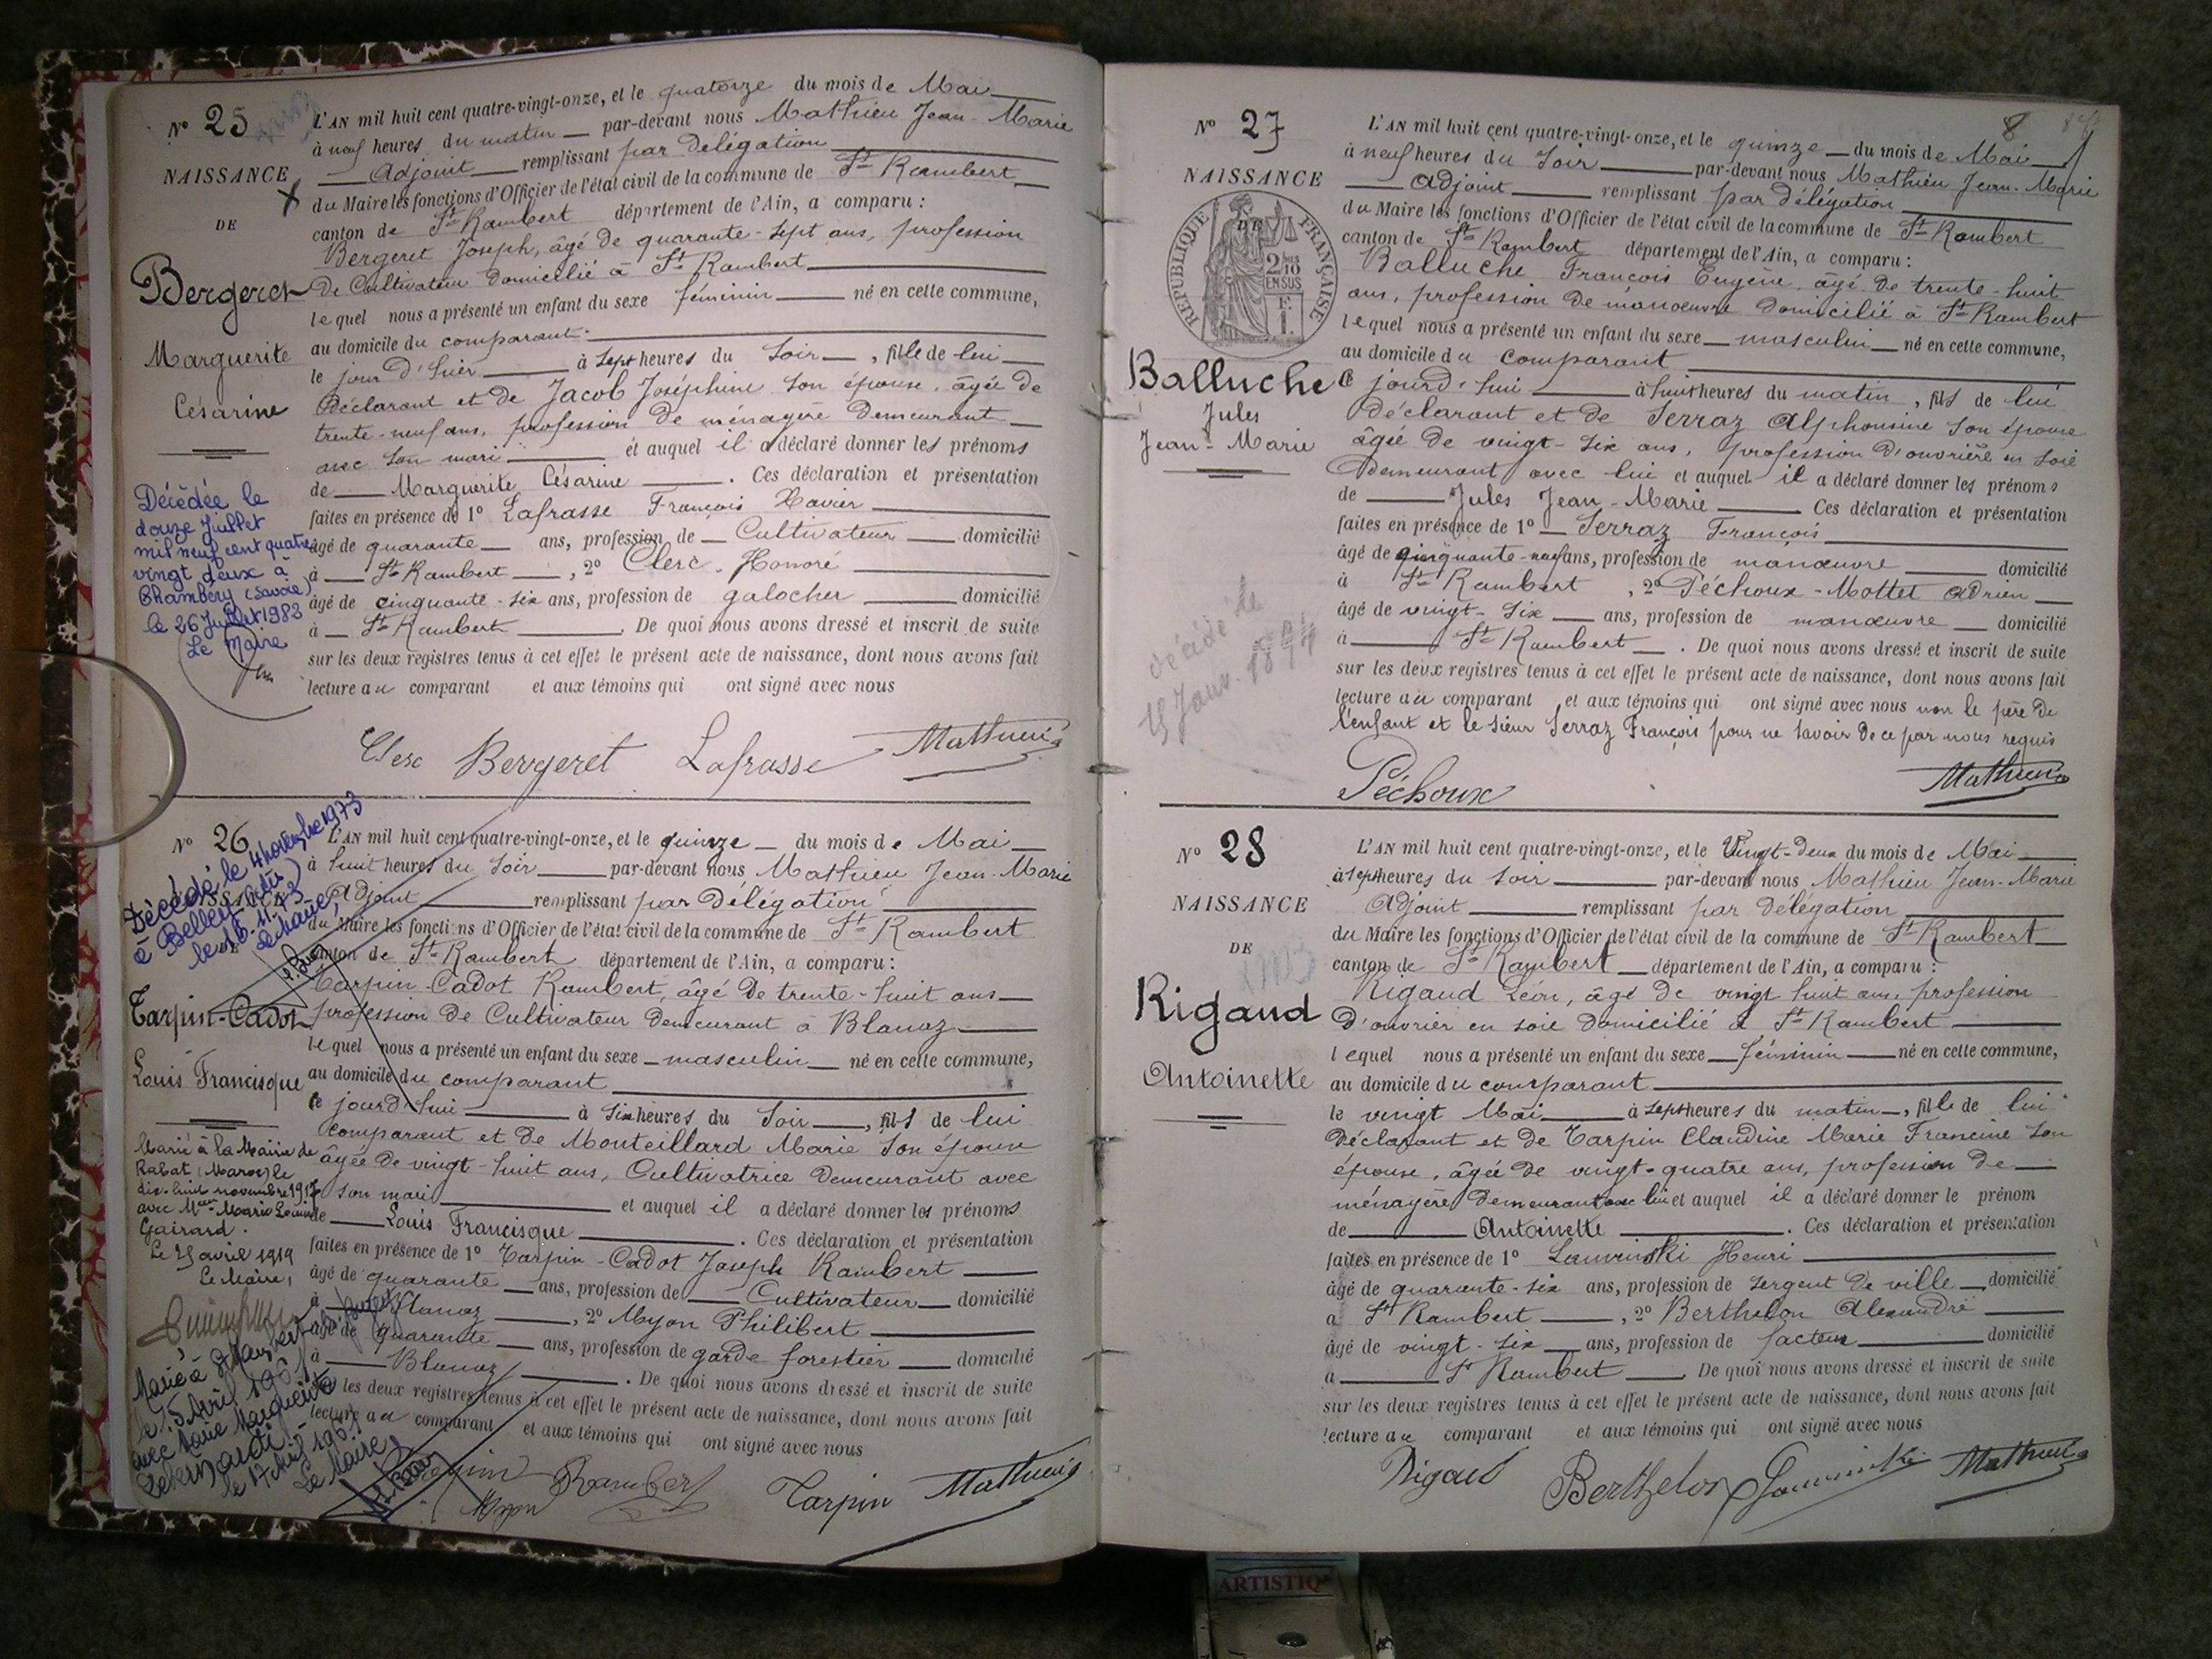 N° 25
NAISSANCE
DE
Bergeret
Marguerite
Césarine
Décédée le
douze Juillet
mil neuf cent quatre
vingt deux à
Chambéry (Savoie)
le 26 Juillet 1983
Le Maire
L'AN mil huit cent quatre-vingt-onze, et le quatorze du mois de Mai
à neuf heures du matin par-devant nous Mathieu Jean-Marie
Adjoint remplissant par délégation
du Maire les fonctions d'Officier de l'état civil de la commune de St Rambert
canton de St Rambert département de l'Ain, a comparu :
Bergeret Joseph, âgé de quarante-sept ans, profession
de Cultivateur domicilié à St Rambert
lequel nous a présenté un enfant du sexe féminin né en cette commune,
au domicile du comparant
le jour d'hier à sept heures du soir, fille de lui
déclarant et de Jacob Joséphine son épouse, âgée de
trente-neuf ans, profession de ménagère demeurant
avec son mari et auquel il a déclaré donner les prénoms
de Marguerite Césarine. Ces déclaration et présentation
faites en présence de 1° Lafrasse François Xavier
âgé de quarante ans, profession de Cultivateur domicilié
à St Rambert, 2° Clerc Honoré
âgé de cinquante-six ans, profession de galocher domicilié
à St Rambert. De quoi nous avons dressé et inscrit de suite
sur les deux registres tenus à cet effet le présent acte de naissance, dont nous avons fait
lecture au comparant et aux témoins qui ont signé avec nous
Clerc Bergeret Lafrasse Mathieu
N° 26
Décédé le 4 novembre 1973
à Belley
le 16.11.73
Le Maire,
Tarpin-Cadot
Louis Francisque
Marié à la Mairie de
Rabat (Maroc) le
dix-huit novembre 1917
avec Melle Marie
Gairard.
Le 25 avril 1919
Le Maire,
Marié à
le 5 Avril
avec Marie Marguerite
le 17 Avril
Le Maire
L'AN mil huit cent quatre-vingt-onze, et le quinze du mois de Mai
à huit heures du soir par-devant nous Mathieu Jean-Marie
Adjoint remplissant par délégation
du Maire les fonctions d'Officier de l'état civil de la commune de St Rambert
canton de St Rambert département de l'Ain, a comparu :
Tarpin-Cadot Rambert, âgé de trente-huit ans
profession de Cultivateur demeurant à Blanaz
lequel nous a présenté un enfant du sexe masculin né en cette commune,
au domicile du comparant
le jourd'hui à six heures du soir, fils de lui
comparant et de Monteillard Marie son épouse
âgée de vingt-huit ans, Cultivatrice demeurant avec
son mari et auquel il a déclaré donner les prénoms
de Louis Francisque. Ces déclaration et présentation
faites en présence de 1° Tarpin-Cadot Joseph Rambert
âgé de quarante ans, profession de Cultivateur domicilié
à Blanaz, 2° Myon Philibert
âgé de quarante ans, profession de garde forestier domicilié
à Blanaz. De quoi nous avons dressé et inscrit de suite
les deux registres tenus à cet effet le présent acte de naissance, dont nous avons fait
lecture au comparant et aux témoins qui ont signé avec nous
Myon Rambert Tarpin Mathieu
8
N° 27
NAISSANCE
DE
RÉPUBLIQUE FRANÇAISE
2/10 EN SUS
Balluche
Jules
Jean-Marie
décédé le
L'AN mil huit cent quatre-vingt-onze, et le quinze du mois de Mai
à neuf heures du soir par-devant nous Mathieu Jean-Marie
Adjoint remplissant par délégation
du Maire les fonctions d'Officier de l'état civil de la commune de St Rambert
canton de St Rambert département de l'Ain, a comparu :
Balluche François Eugène, âgé de trente-huit
ans, profession de manœuvre domicilié à St Rambert
lequel nous a présenté un enfant du sexe masculin né en cette commune,
au domicile du comparant
le jourd'hui à huit heures du matin, fils de lui
déclarant et de Serraz Alphonsine son épouse
âgée de vingt-six ans, profession d'ouvrière en soie
demeurant avec lui et auquel il a déclaré donner les prénoms
de Jules Jean-Marie Ces déclaration et présentation
faites en présence de 1° Serraz François
âgé de cinquante-neuf ans, profession de manœuvre domicilié
à St Rambert, 2° Péchoux-Mottet Adrien
âgé de vingt-six ans, profession de manœuvre domicilié
à St Rambert. De quoi nous avons dressé et inscrit de suite
sur les deux registres tenus à cet effet le présent acte de naissance, dont nous avons fait
lecture au comparant et aux témoins qui ont signé avec nous non le père de
l'enfant et le sieur Serraz François pour ne savoir de ce par nous requis
Péchoux Mathieu
N° 28
NAISSANCE
DE
Rigaud
Antoinette
L'AN mil huit cent quatre-vingt-onze, et le Vingt-deux du mois de Mai
à sept heures du soir par-devant nous Mathieu Jean-Marie
Adjoint remplissant par délégation
du Maire les fonctions d'Officier de l'état civil de la commune de St Rambert
canton de St Rambert département de l'Ain, a comparu :
Rigaud Léon, âgé de vingt huit ans, profession
d'ouvrier en soie domicilié à St Rambert
lequel nous a présenté un enfant du sexe féminin né en cette commune,
au domicile du comparant
le vingt Mai à sept heures du matin, fille de lui
déclarant et de Tarpin Claudine Marie Francine son
épouse, âgée de vingt-quatre ans, profession de
ménagère demeurant avec lui et auquel il a déclaré donner le prénom
de Antoinette. Ces déclaration et présentation
faites en présence de 1° Henri
âgé de quarante-six ans, profession de sergent de ville domicilié
à St Rambert, 2° Berthelon Alexandre
âgé de vingt-six ans, profession de facteur domicilié
à St Rambert. De quoi nous avons dressé et inscrit de suite
sur les deux registres tenus à cet effet le présent acte de naissance, dont nous avons fait
lecture au comparant et aux témoins qui ont signé avec nous
Rigaud Berthelon Mathieu
ARTISTIQ